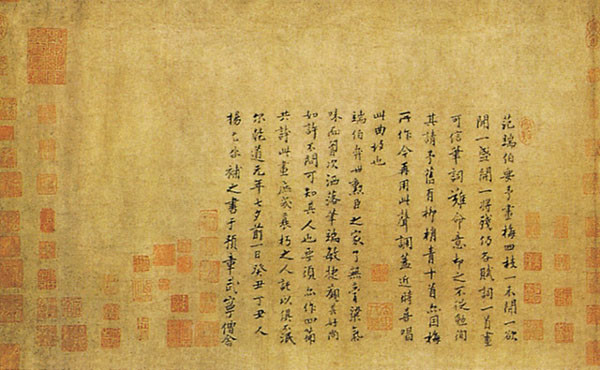 范端伯要予畫梅四枝一未開一欲
開一盛開一將殘仍各賦詞一首畫
可信筆詞難命意却之不從勉徇
其請予舊有柳梢青十首亦因梅
所作今再用此聲調蓋近時喜唱
此曲故也
端伯奕世勳臣之家了無膏粱氣
味而胸次洒落筆端敏捷觀其好尚
如許不問可知其人也要須亦作四篇
共誇此畫庶幾衰朽之人託以俱不泯
尔乾道元年七夕前一日癸丑丁丑人
揚无咎補之書于豫章武寧僧舍